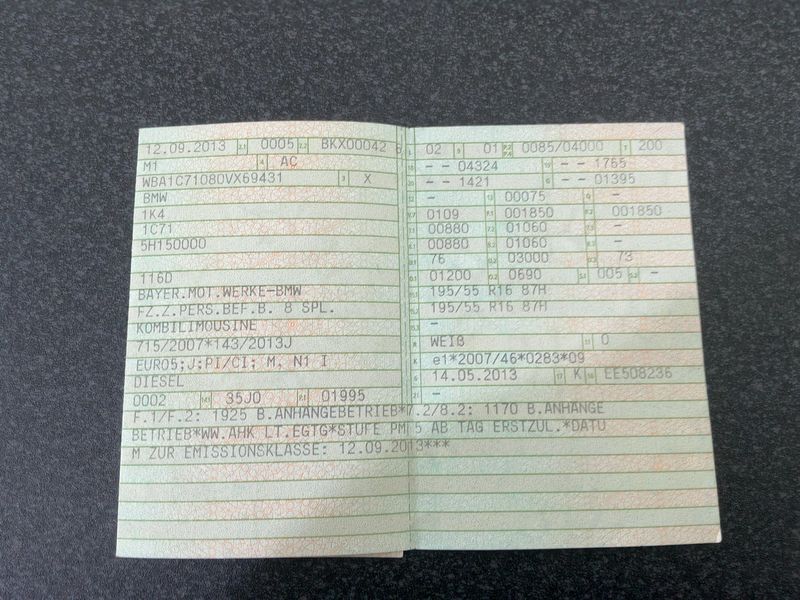 12.09.2013 2.1 0005 2.2 BKX00042 6
M1 4 AC
WBA1C71080VX69431 3 X
BMW
1K4
1C71
5H150000
116D
BAYER.MOT.WERKE-BMW
FZ.Z.PERS.BEF.B. 8 SPL.
KOMBILIMOUSINE
715/2007*143/2013J
EURO5;J;PI/CI; M, N1 I
DIESEL
0002 14.1 35J0 P.1 01995
L 02 9 01 P.2 P.4 0085/04000 T 200
18 - - 04324 19 - - 1765
20 - - 1421 G - - 01395
12 - 13 00075 Q -
V.7 0109 F.1 001850 F.2 001850
7.1 00880 7.2 01060 7.3 -
8.1 00880 8.2 01060 8.3 -
U.1 76 U.2 03000 U.3 73
O.1 01200 O.2 0690 S.1 005 S.2 -
15.1 195/55 R16 87H
15.2 195/55 R16 87H
15.3 -
R WEIß 11 0
K e1*2007/46*0283*09
6 14.05.2013 17 K 16 EE508236
21 -
F.1/F.2: 1925 B.ANHÄNGEBETRIEB*7.2/8.2: 1170 B.ANHÄNGE
BETRIEB*WW.AHK LT.EGTG*STUFE PM 5 AB TAG ERSTZUL.*DATU
M ZUR EMISSIONSKLASSE: 12.09.2013***